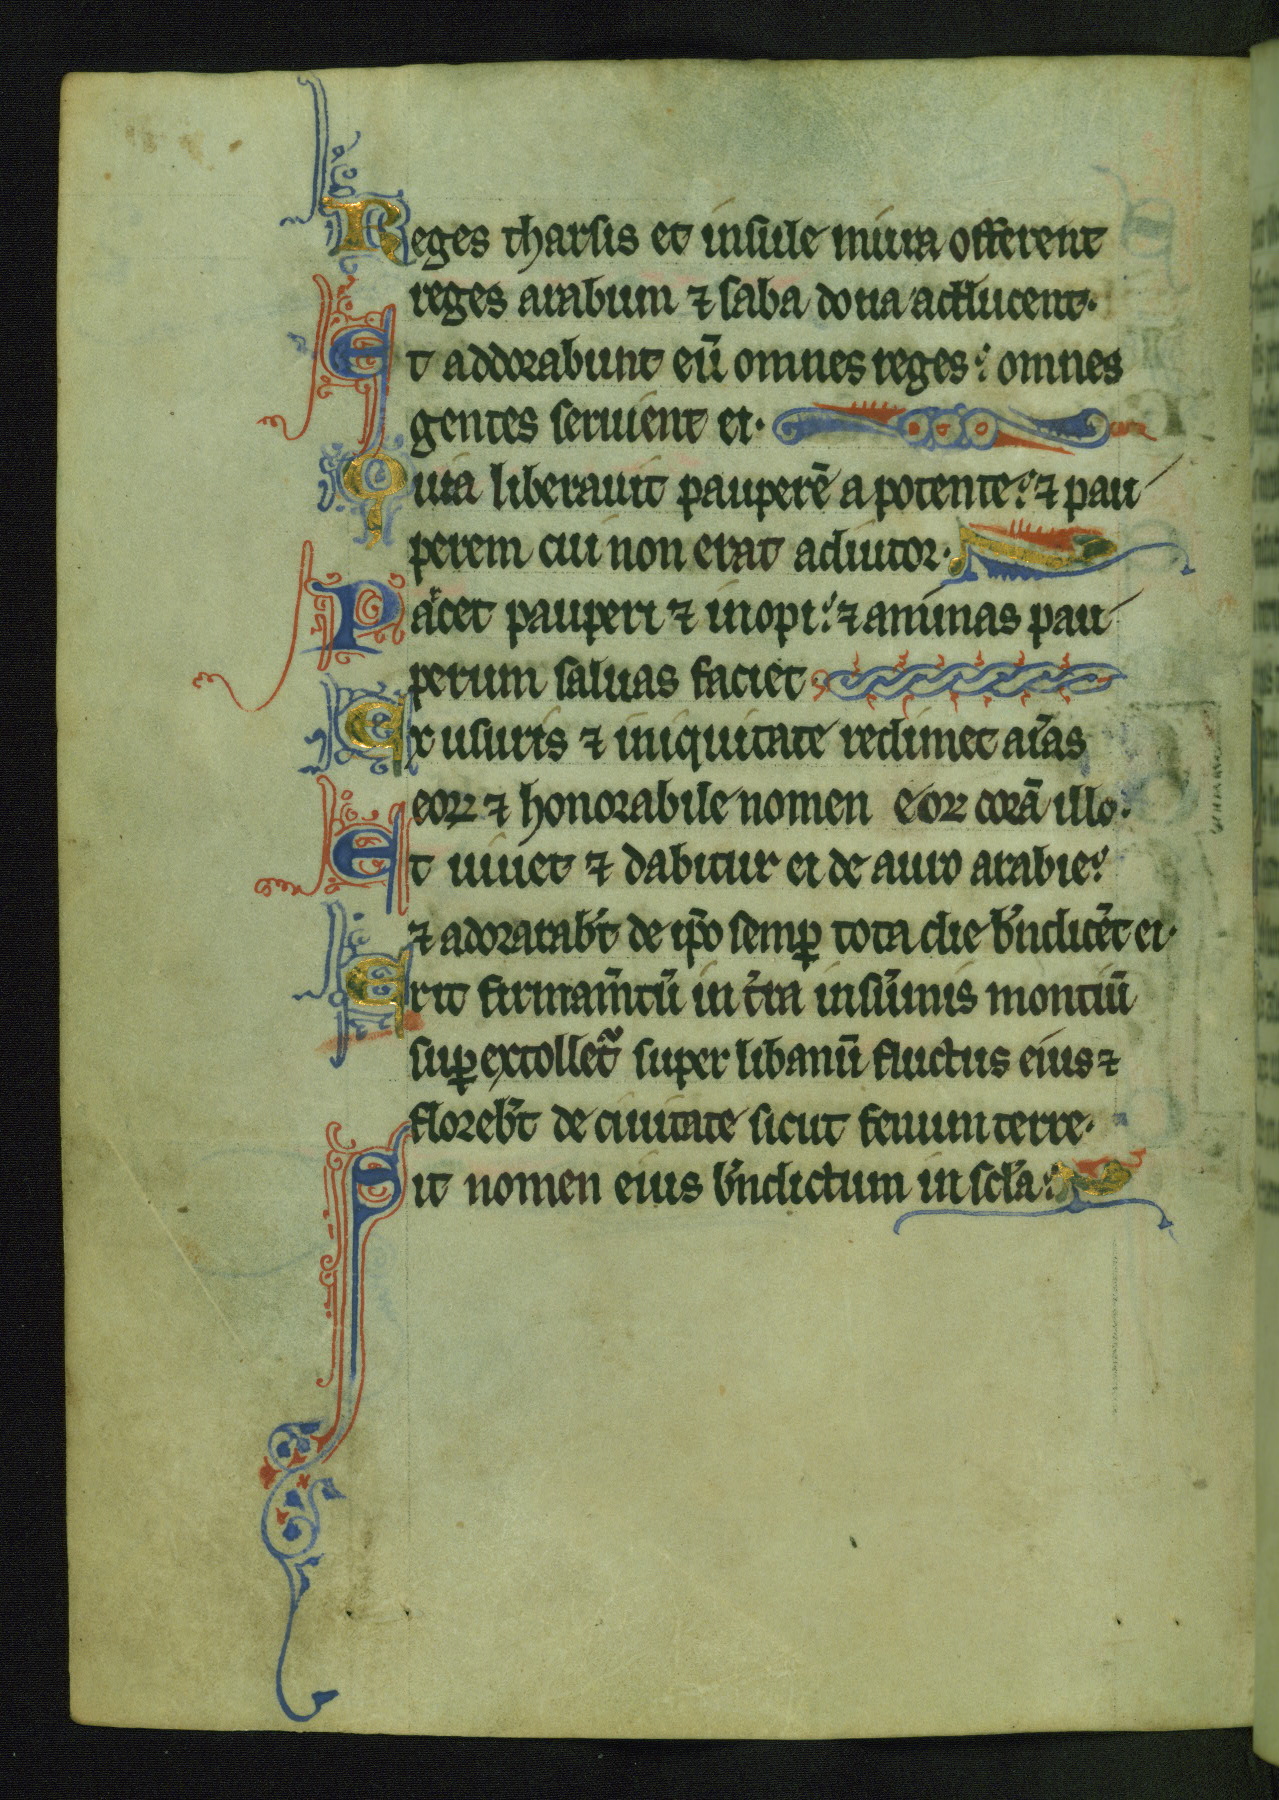 Reges tharsis et insule mura offerent
reges arabum ⁊ saba dona adducent·
Et addorabunt eū omnes reges: omnes
gentes seruient ei·
Quia liberauit pauperē a potente: ⁊ pau
perem cui non erat adiutor·
Parcet pauperi ⁊ inopi: ⁊ animas pau
perum saluas faciet
Ex usuris ⁊ iniquitate redimet aīas
eoꝝ ⁊ honorabile nomen eoꝝ corā illo·
Et uiuet ⁊ dabitur ei de auro arabie:
⁊ adorarab̄t de ip̄o semꝑ tota die b̄ndicēt ei·
Erit firmam̄tū in t̄ra in sūmis montiū
suꝑ extollet᷑ super libanū fluctus eius ⁊
floreb̄t de ciuitate sicut fenum terre·
Sit nomen eius b̄ndictum in sc̄la: